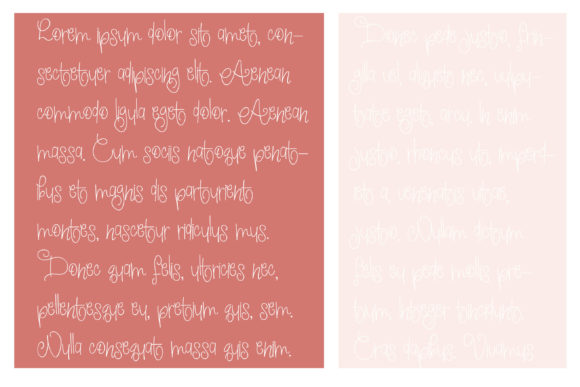 Lorem ipsum dolor sit amet, con-
sectetuer adipiscing elit. Aenean
commodo ligula eget dolor. Aenean
massa. Cum sociis natoque penat-
ibus et magnis dis parturient
montes, nascetur ridiculus mus.
Donec quam felis, ultricies nec,
pellentesque eu, pretium quis, sem.
Nulla consequat massa quis enim.
Donec pede justo, frin-
gilla vel, aliquet nec, vulpu-
tate eget, arcu. In enim
justo, rhoncus ut, imperdi-
et a, venenatis vitae,
justo. Nullam dictum
felis eu pede mollis pre-
tium. Integer tincidunt.
Cras dapibus. Vivamus